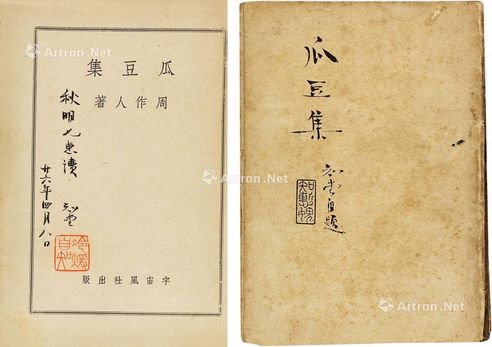 瓜豆集
周作人著
秋明兄惠讀
知堂
廿六年四月八日
冷暖自知
宇宙風社出版
瓜豆集
知堂自題
Artron.Net
Artron.Net
Artron.Net
Artron.Net